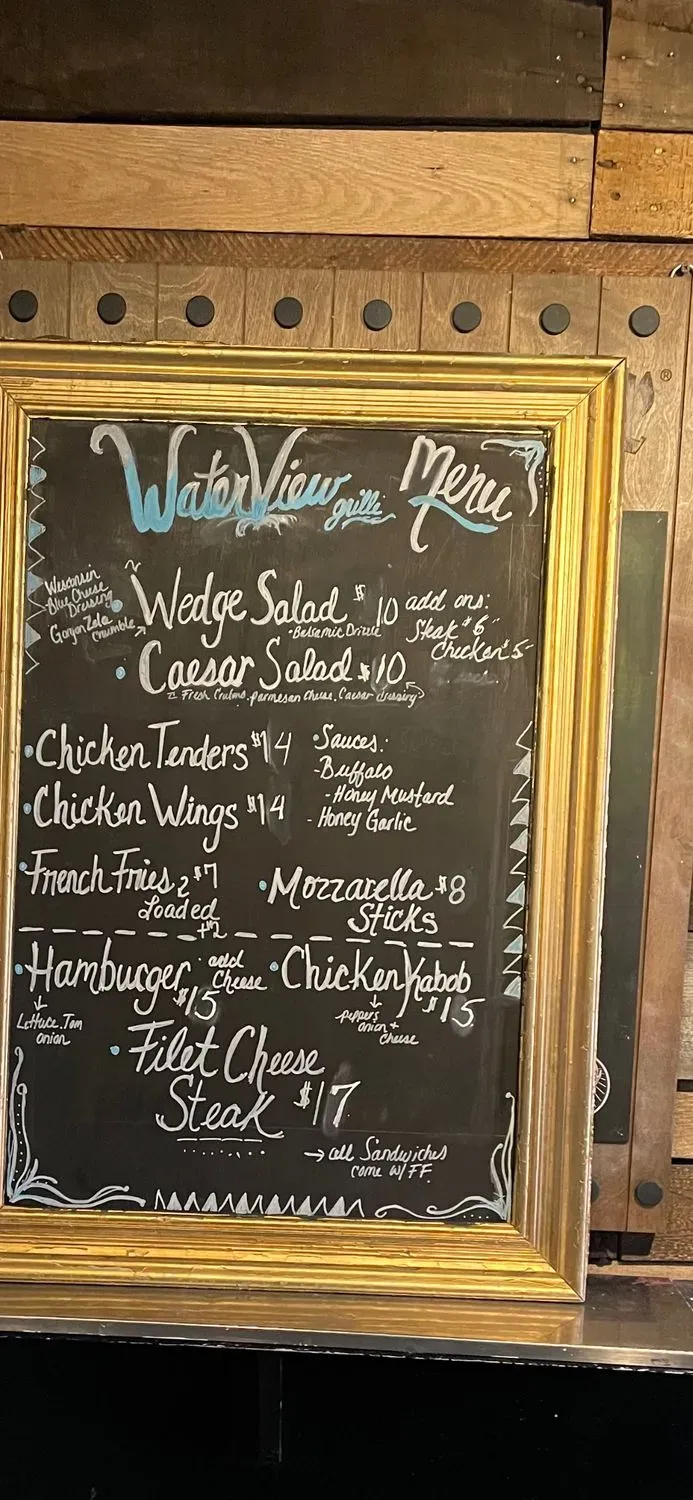 WaterView grille Menu
Wisconsin
Blue Cheese
Dressing
GorgonZola
Crumble
Wedge Salad $10
•Balsamic Drizzle
add ons:
Steak $6
Chicken $5
• Caesar Salad $10
Fresh Crutons, parmesan cheese, Caesar dressing
• Chicken Tenders $14
• Chicken Wings $14
• Sauces:
-Buffalo
-Honey Mustard
- Honey Garlic
• French Fries $7
Loaded
+$2
• Mozzarella $8
Sticks
• Hamburger $15
add
Cheese
Lettuce, Tom
onion
• Chicken Kabob
$15
peppers
onion +
cheese
• Filet Cheese
Steak $17
→ all Sandwiches
come w/ FF.
®